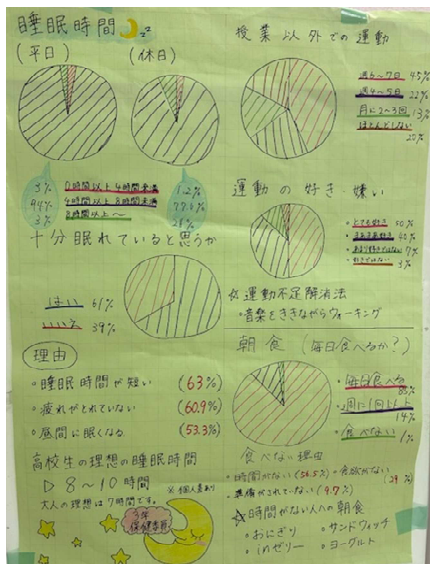 睡眠時間
(平日) (休日)
3% 0時間以上4時間未満 1.2%
94% 4時間以上8時間未満
3% 8時間以上〜 21%
十分眠れていると思うか
はい 61%
いいえ 39%
理由
・睡眠時間が短い (63%)
・疲れがとれていない (60.9%)
・昼間に眠くなる (53.3%)
高校生の理想の睡眠時間
▷ 8〜10時間 ※個人差あり
大人の理想は7時間です。
保健委員
授業以外での運動
週6〜7日 45%
週4〜5日 22%
月に2〜3回 13%
ほとんどしない
20%
運動の好き・嫌い
・とても好き 50%
・まあまあ好き 40%
・あまり好きではない 7%
・好きではない 3%
☆運動不足解消法
・音楽をききながらウォーキング
朝食 (毎日食べるか?)
・毎日食べる
85%
・週に1回以上
14%
・食べない 1%
食べない理由
・時間がない (56.5%) ・食欲がない
(29%)
・準備がされていない (9.7%)
☆時間がない人への朝食
・おにぎり ・サンドウィッチ
・inゼリー ・ヨーグルト